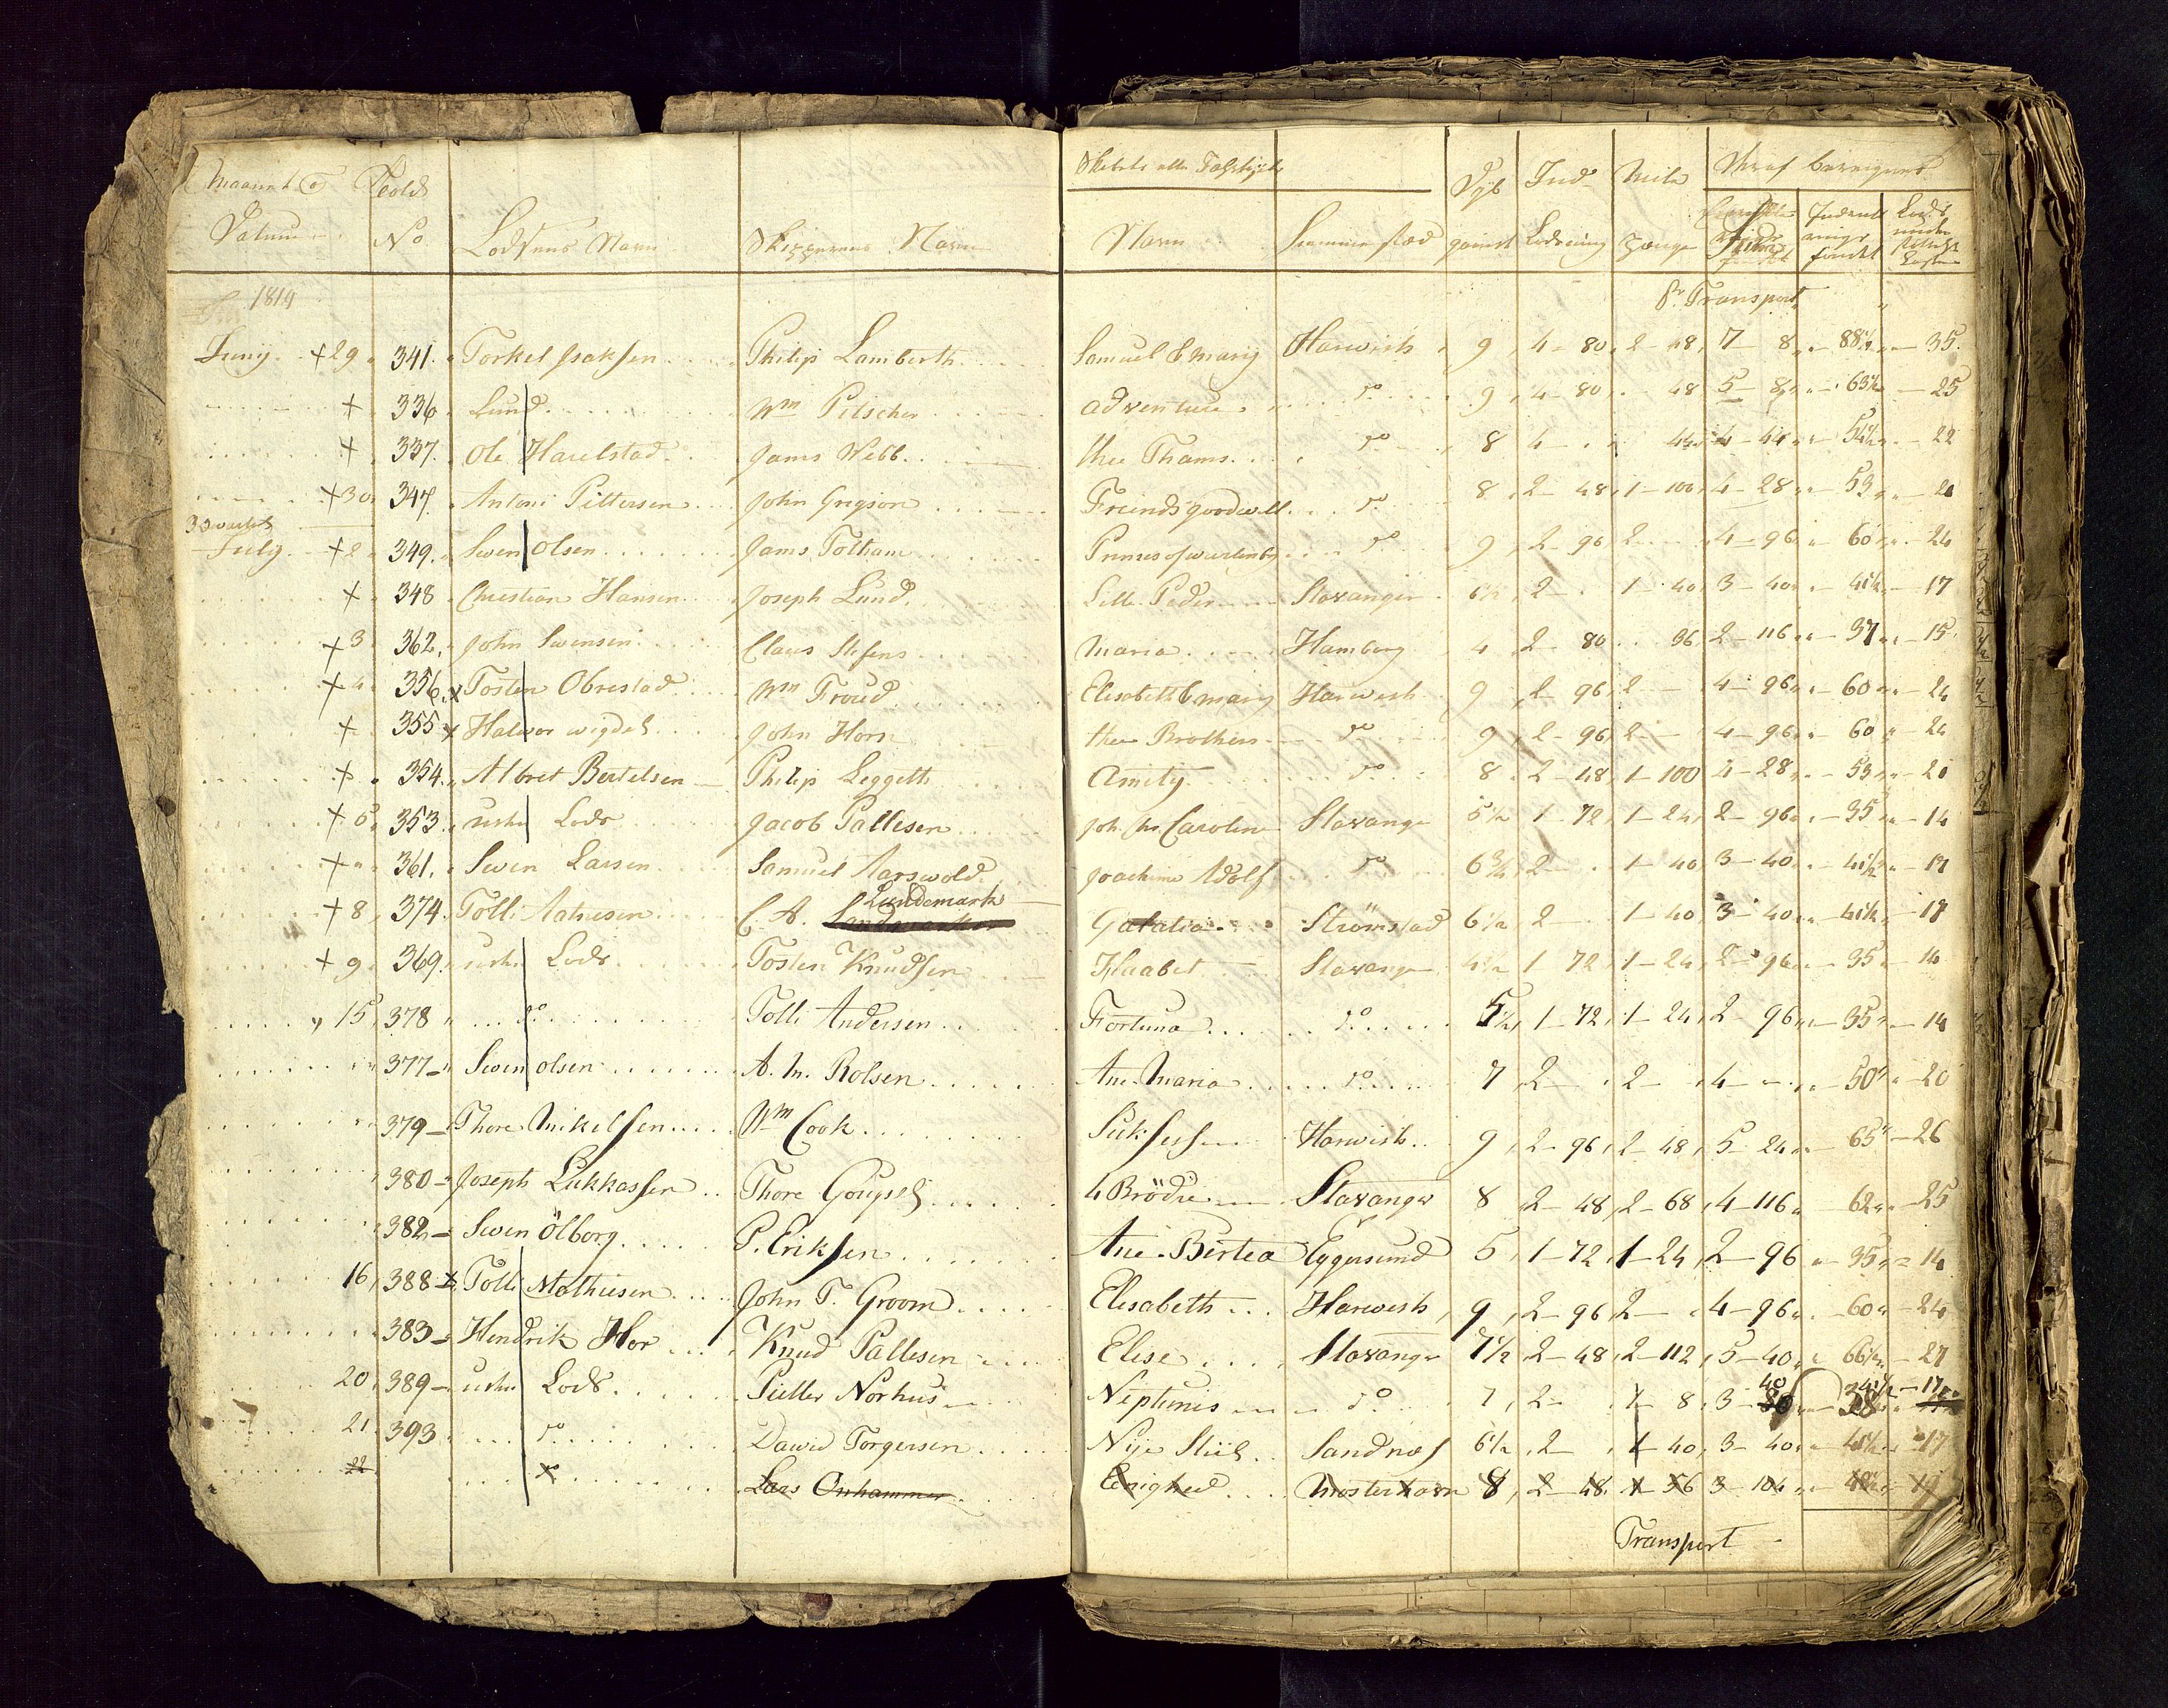 Maaned & Seddl
Datum No Lodsens Navn Skipperens Navn
Skibets eller Fartøyets Dyb Ind Mile Heraf beregnes
Navn Hiemmestæd gaaend Lodsning penge
1819 Transport
Juny + 29 341 Torkel Isaksen Philip Lamberth Samuel & Mary Harwich 9 4 - 80 2 - 48 7 - 8 88½ 35
+ 336 Lund Wm Pitscher Adventure do 9 4 - 80 48 5 - 8 63½ 25
+ 337 Ole Harelstad Jams Webb thee Thams do 8 4 44 4 - 44 54½ 22
+ 30 347 Antoni Pittersen John Grigson Freinds goodwill do 8 2 - 48 1 - 100 4 - 28 53 21
3 Qvartal
July + 2 349 Swen Olsen Jams Totham Prinses of wurtenb do 9 2 - 96 2 4 - 96 60 24
+ 348 Christian Hansen Joseph Lund Lille Peder Stavanger 6½ 2 1 - 40 3 - 40 41½ 17
+ 3 362 John Swensen Claus Stefens Maria Hamborg 4 2 80 36 2 - 116 37 15
+ 4 356 x Tosten Obrestad Wm Froud Elisabeth & mary Harwich 9 2 - 96 2 4 - 96 60 24
+ 355 x Halwor wigdel John Horn thee Brothers do 9 2 - 96 2 4 - 96 60 24
+ 354 Albret Bertelsen Philip Leggett Amity do 8 2 - 48 1 - 100 4 - 28 53 21
+ 5 353 uvhn Lods Jacob Pallesen Joh. Chr. Caroline Stavange 5½ 1 - 72 1 - 24 2 - 96 35 14
+ " 361 Swen Larsen Samuel Aarswold Joachim Adolf do 6¾ 2 1 - 40 3 - 40 41½ 17
+ 8 374 Tolli Matiesen C. A. Lundemark Galatia Strömstad 6½ 2 1 - 40 3 - 40 41½ 17
+ 9 369 uvhn Lods Tosten Knudsen Haabet Stavange 4½ 1 72 1 - 24 2 - 96 35 14
" 15 378 do Tolli Andersen Fortuna do 5½ 1 - 72 1 - 24 2 96 35 - 14
377 Swen olsen A. M. Rolsen Ane Maria do 7 2 2 4 50 20
379 Thore Mikelsen Wm Cook Suksess Harwich 9 2 - 96 2 - 48 5 - 24 65 - 26
380 Joseph Lukkassen Thore 4 Brödre Stavanger 8 2 - 48 2 - 68 4 - 116 62 25
382 Swen Ölborg P. Eriksen Ane Bertea Eggersund 5 1 - 72 1 - 24 2 - 96 35 14
16 388 x Tolli Mathiesen John T. Groom Elisabeth Harwich 9 2 - 96 2 4 - 96 60 24
383 Hendrik Hor Knud Pallesen Elise Stavanger 7½ 2 - 48 2 - 112 5 - 40 66½ 27
20 389 uvhn Lods Pitter Norhus Neptunis do 7 2 1 8 3 - 40 41½ - 17
21 393 do Dawid Torgersen Nye Stiil Sandnæs 6½ 2 1 40 3 - 40 41½ 17
22 do Lars Onhammer Enighed Mosterhavn 8 2 - 48 1 - 56 3 - 104 19
Transport